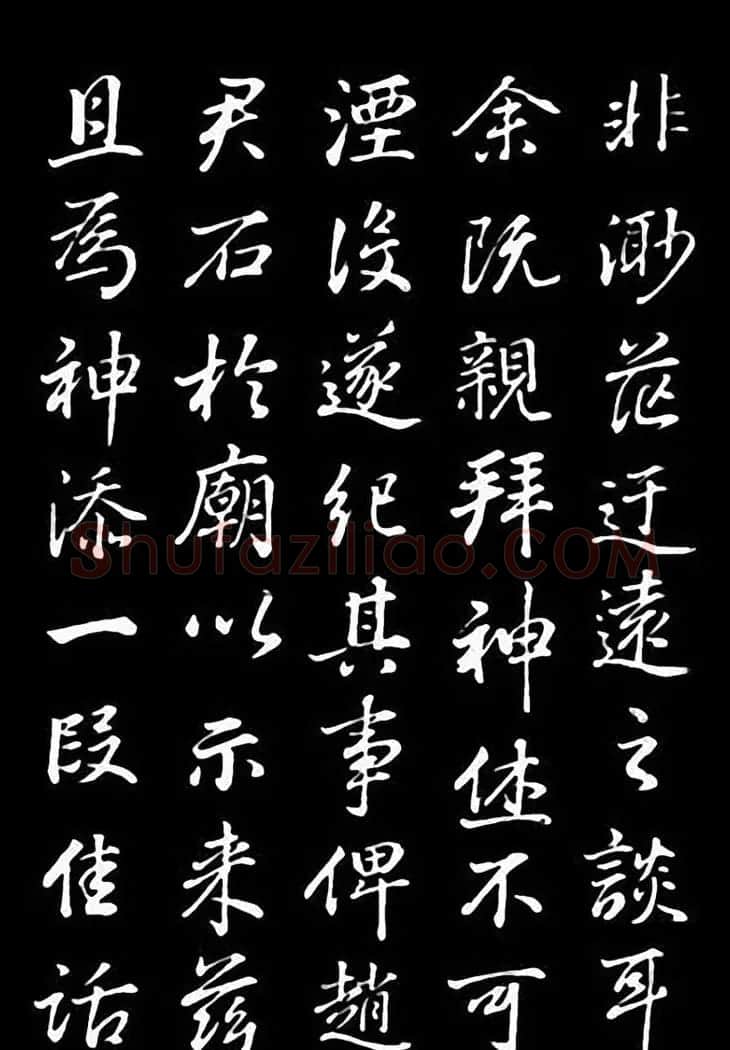 非渺茫迂遠之談耳
余既親拜神休不可
湮没遂紀其事俾趙
君石於廟以示来兹
且為神添一段佳話
Shufaziliao.COM